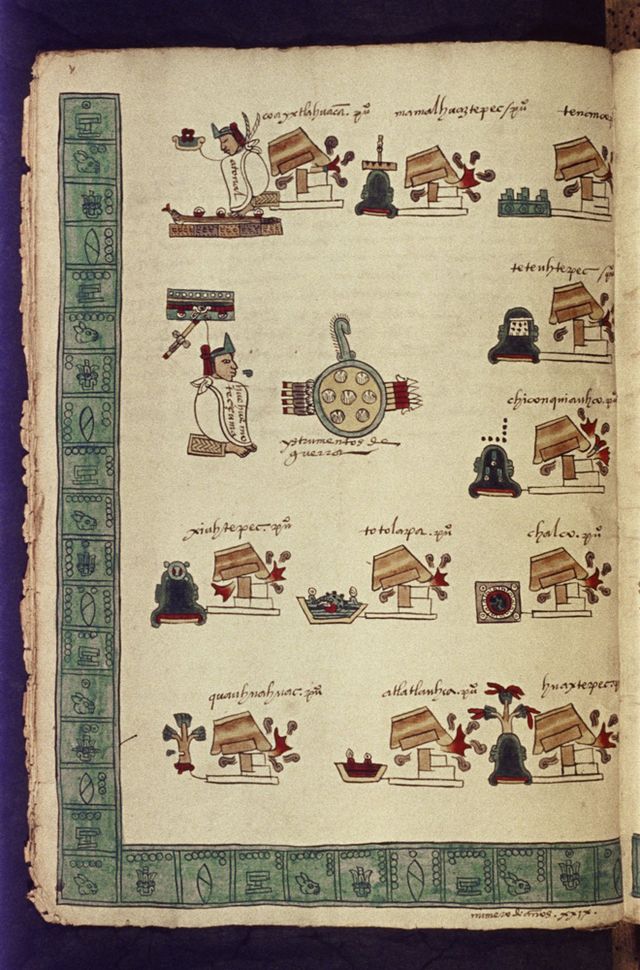 coayxtlahuacā. pūo
mamalhuaztepec / pūo
tenanco
atonal
tetenhtepec / pūo
huehuemo
teçuma
chiconquiauhco. pūo
ynstrumentos de
guerra
xiuhtepec. pūo
totolapa. pūo
chalco. pūo
quauhnahuac. pūo
atlatlauhca. pūo
huaxtepec. pūo
numero de años. XXIX.